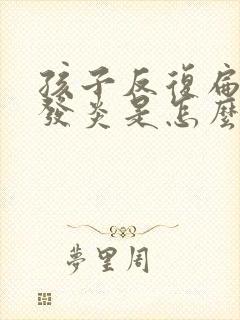 孩子反復扁
發炎是怎麼
夢里周